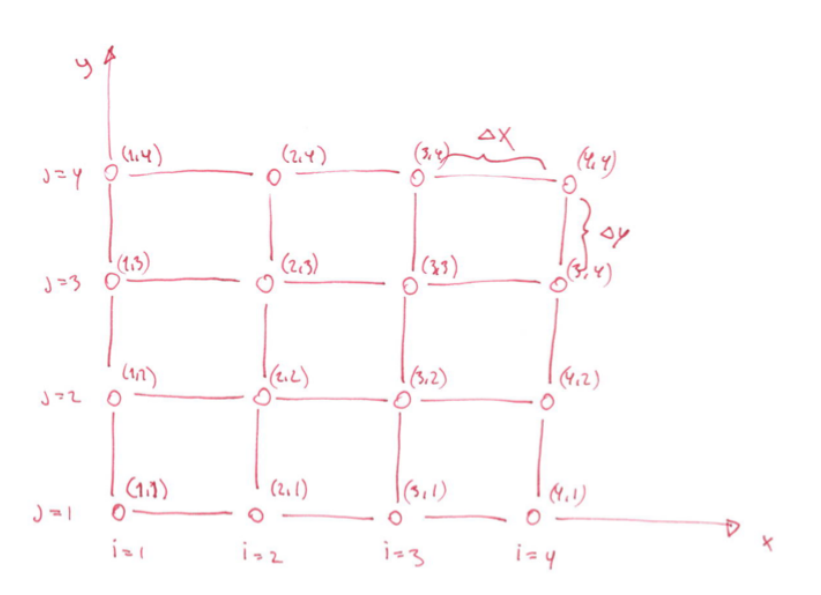 y
ΔX
(1,4) (2,4) (3,4) (4,4)
J=4
ΔY
(1,3) (2,3) (3,3) (3,4)
J=3
(1,2) (2,2) (3,2) (4,2)
J=2
(1,1) (2,1) (3,1) (4,1)
J=1
x
i=1 i=2 i=3 i=4